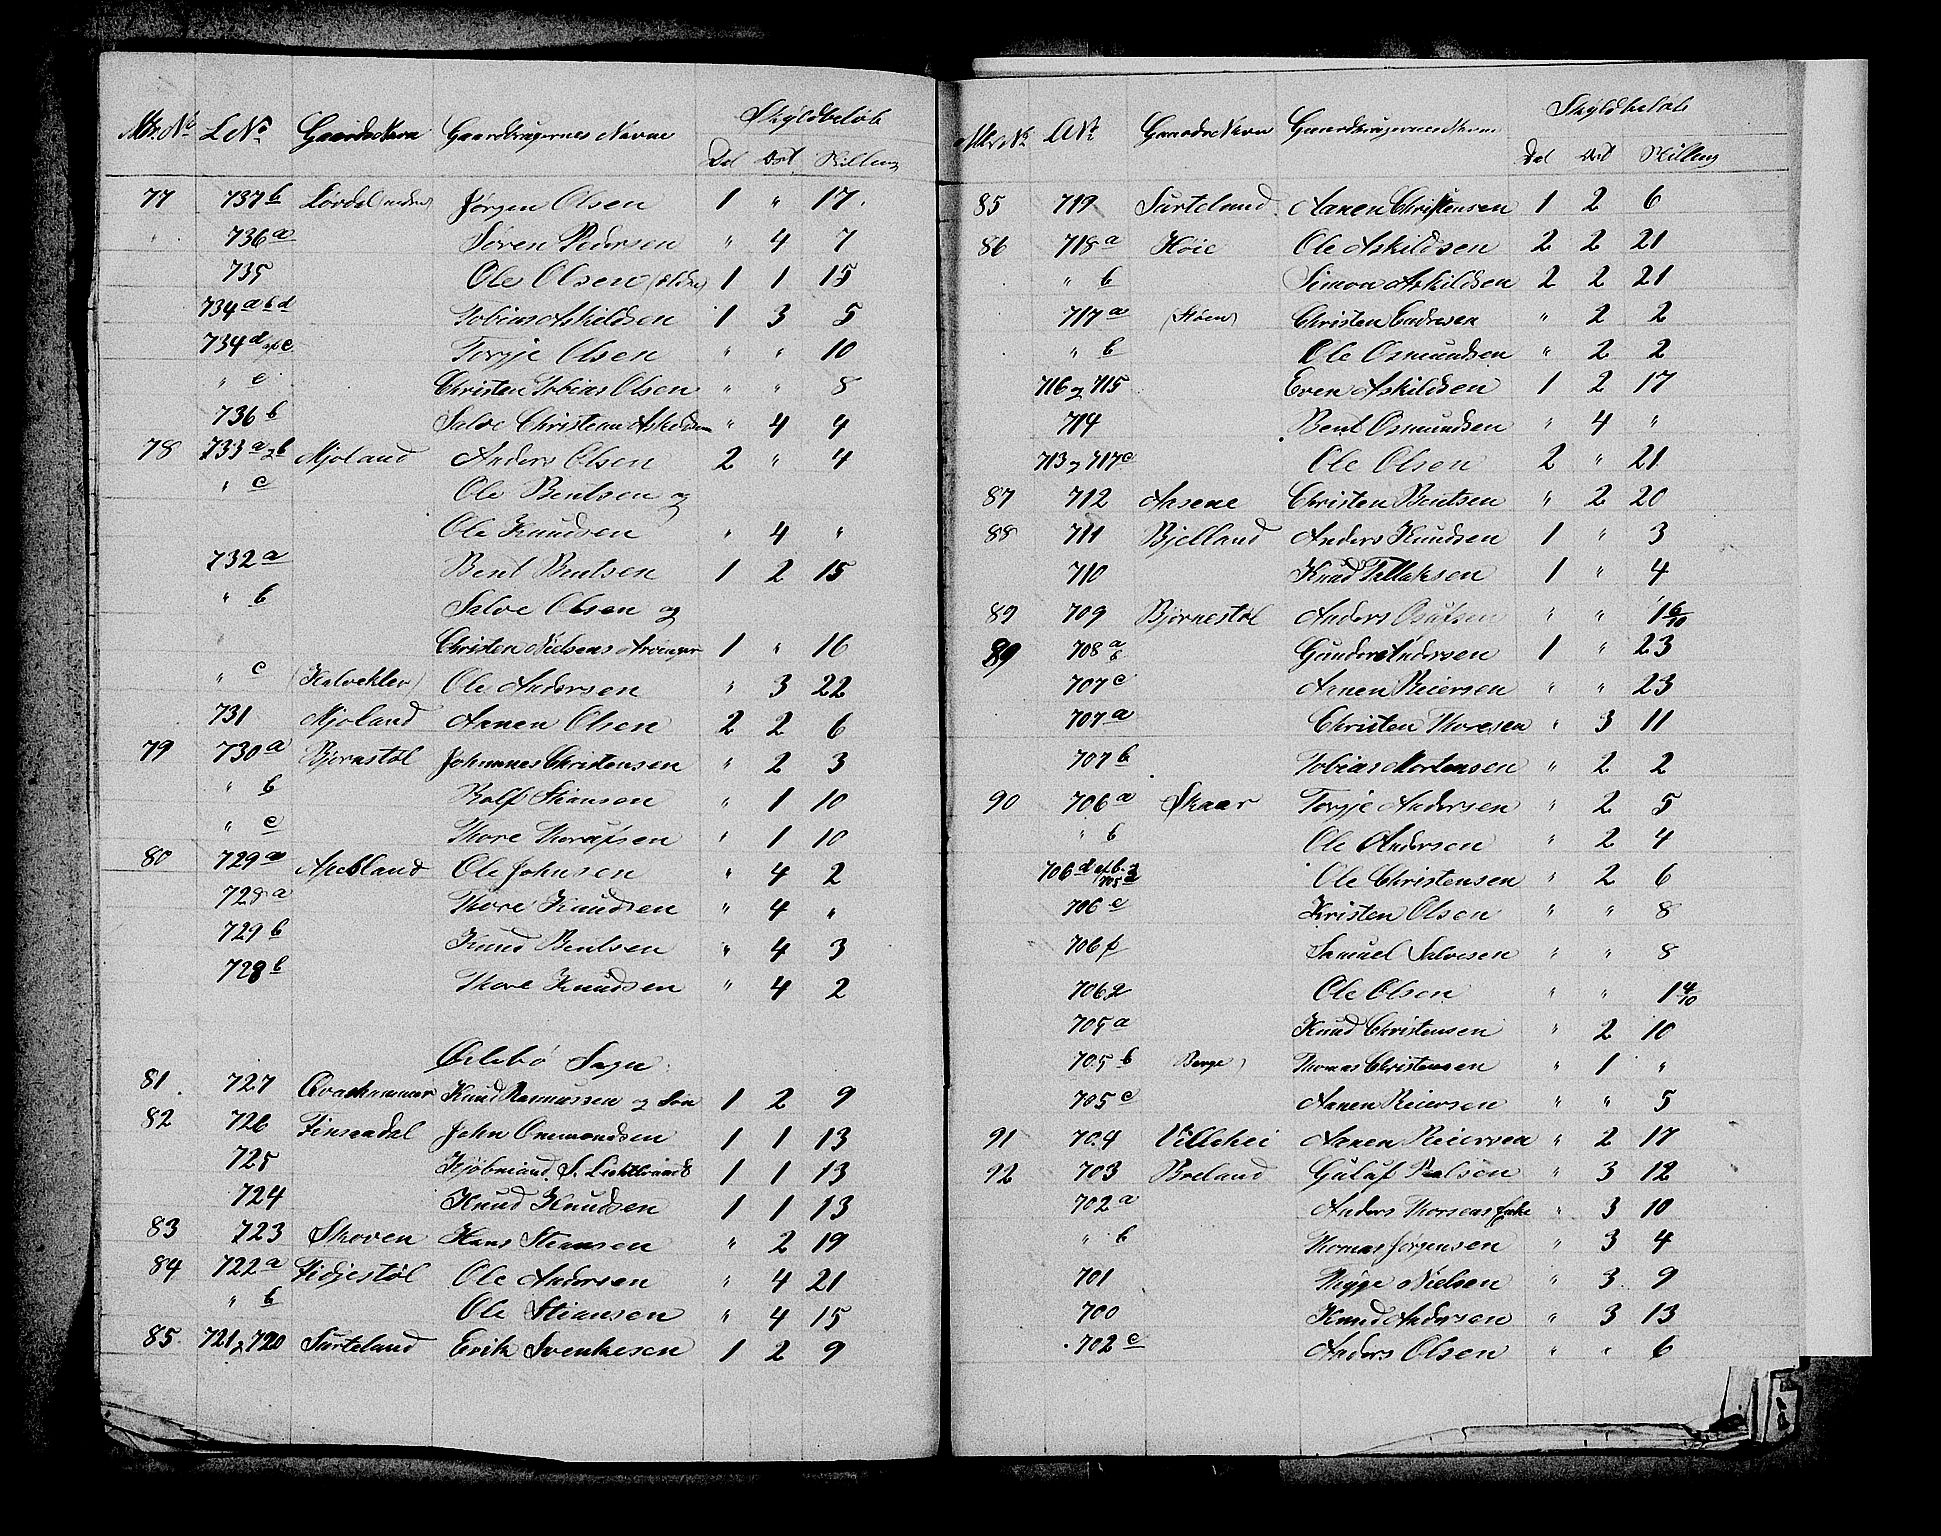 Mtr. No L. No Gaards Navn Gaardbrugernes Navne Skyldbeløb
Dal Ort Skilling
77 737 b Løvdal nedre Jørgen Olsen 1 " 17.
" 736 a Søren Pedersen " 4 7
735 Ole Olsen (ældre) 1 1 15
734 a b d Tobias Askildsen 1 3 5
734 d af c Torjje Olsen " " 10
" e Christen Tobias Olsen " " 8
736 b Salve Christian Askildsen " 4 4
78 733 a og b Mjoland Anders Olsen 2 " 4
" c Ole Bentsen og
Ole Knudsen " 4 "
732 a Bent Bentsen 1 2 15
" b Salve Olsen og
Christen Nielsens Arvinger 1 " 16
" c (Kalveklev) Ole Andersen " 3 22
731 Mjoland Aanen Olsen 2 2 6
79 730 a Bjørnstøl Johannes Christensen " 2 3
" b Rolf Stiansen " 1 10
" c Thore " 1 10
80 729 a Apesland Ole Johnsen " 4 2
728 a Thore Knudsen " 4 "
729 b Knud Bentsen " 4 3
728 b Thore Knudsen " 4 2
Øslebø Sogn
81. 727 Qvashammar Knud Rasmussen og Søn 1 2 9
82 726 Finsandal John Ommondsen 1 1 13
725 Kjøbmand S. 1 1 13
724 Knud Knudsen 1 1 13
83 723 Skoven Hans Stiansen " 2 19
84 722 a Fidjestøl Ole Andersen " 4 21
" b Ole Stiansen " 4 15
85 721 og 720 Surteland Erik Svenkesen 1 2 9
Mtr. No L No Gaards Navn Gaardbrugernes Navne Skyldbeløb
Dal Ort Skilling
85 719 Surteland Aanen Christensen 1 2 6
86 718 a Høie Ole Askildsen 2 2 21
" b Simon Askildsen 2 2 21
717 a (Støen) Christen Endresen " 2 2
" b Ole Osmundsen " 2 2
716 og 715 Even Askildsen 1 2 17
714 Bent Osmundsen " 4 "
713 og 717 c Ole Olsen 2 " 21
87 712 Aasene Christen Bentsen " 2 20
88 711 Bjelland Anders Knudsen 1 " 3
710 Knud Tellaksen 1 " 4
89 709 Bjørnestøl Anders " " 1 6/10
89 708 a b Gunder Andersen 1 " 23
707 c Aanen Reiersen " " 23
707 a Christen Thoresen " 3 11
707 b Tobias Mortensen " 2 2
90 706 a Skaar Torjje Andersen " 2 5
" b Ole Andersen " 2 4
706 d af b og 705 d Ole Christensen " 2 6
706 e Kristen Olsen " " 8
706 f Samuel Salvesen " " 8
706 g Ole Olsen " " 1 4/10
705 a Knud Christensen " 2 10
705 b Berge) Thomas Christensen " 1 "
705 c Aanen Reiersen " " 5
91 704 Villehei Aanen Reiersen " 2 17
92 703 Boeland Guluf " 3 12
702 a Anders Thorsens Enke " 3 10
" b Thomas Jørgensen " 3 4
701 Nielsen " 3 9
700 Knud Andersen " 3 13
702 c Anders Olsen " " 6